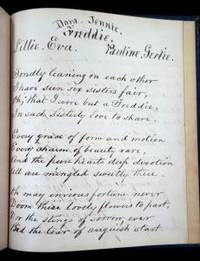 Dora. Jennie.
Freddie.
Lillie. Eva. Pauline. Gertie.
Fondly leaning on each other
I have seen six sisters fair,
Oh, that I were but a Freddie,
In such sisterly love to share.
Every grace of form and motion
Every charm of beauty rare,
And the pure heart's deep devotion
All are mingled sweetly there.
Oh may envious fortune never
Doom these lovely flowers to part,
Or the stings of sorrow, ever
Bid the tear of anguish start